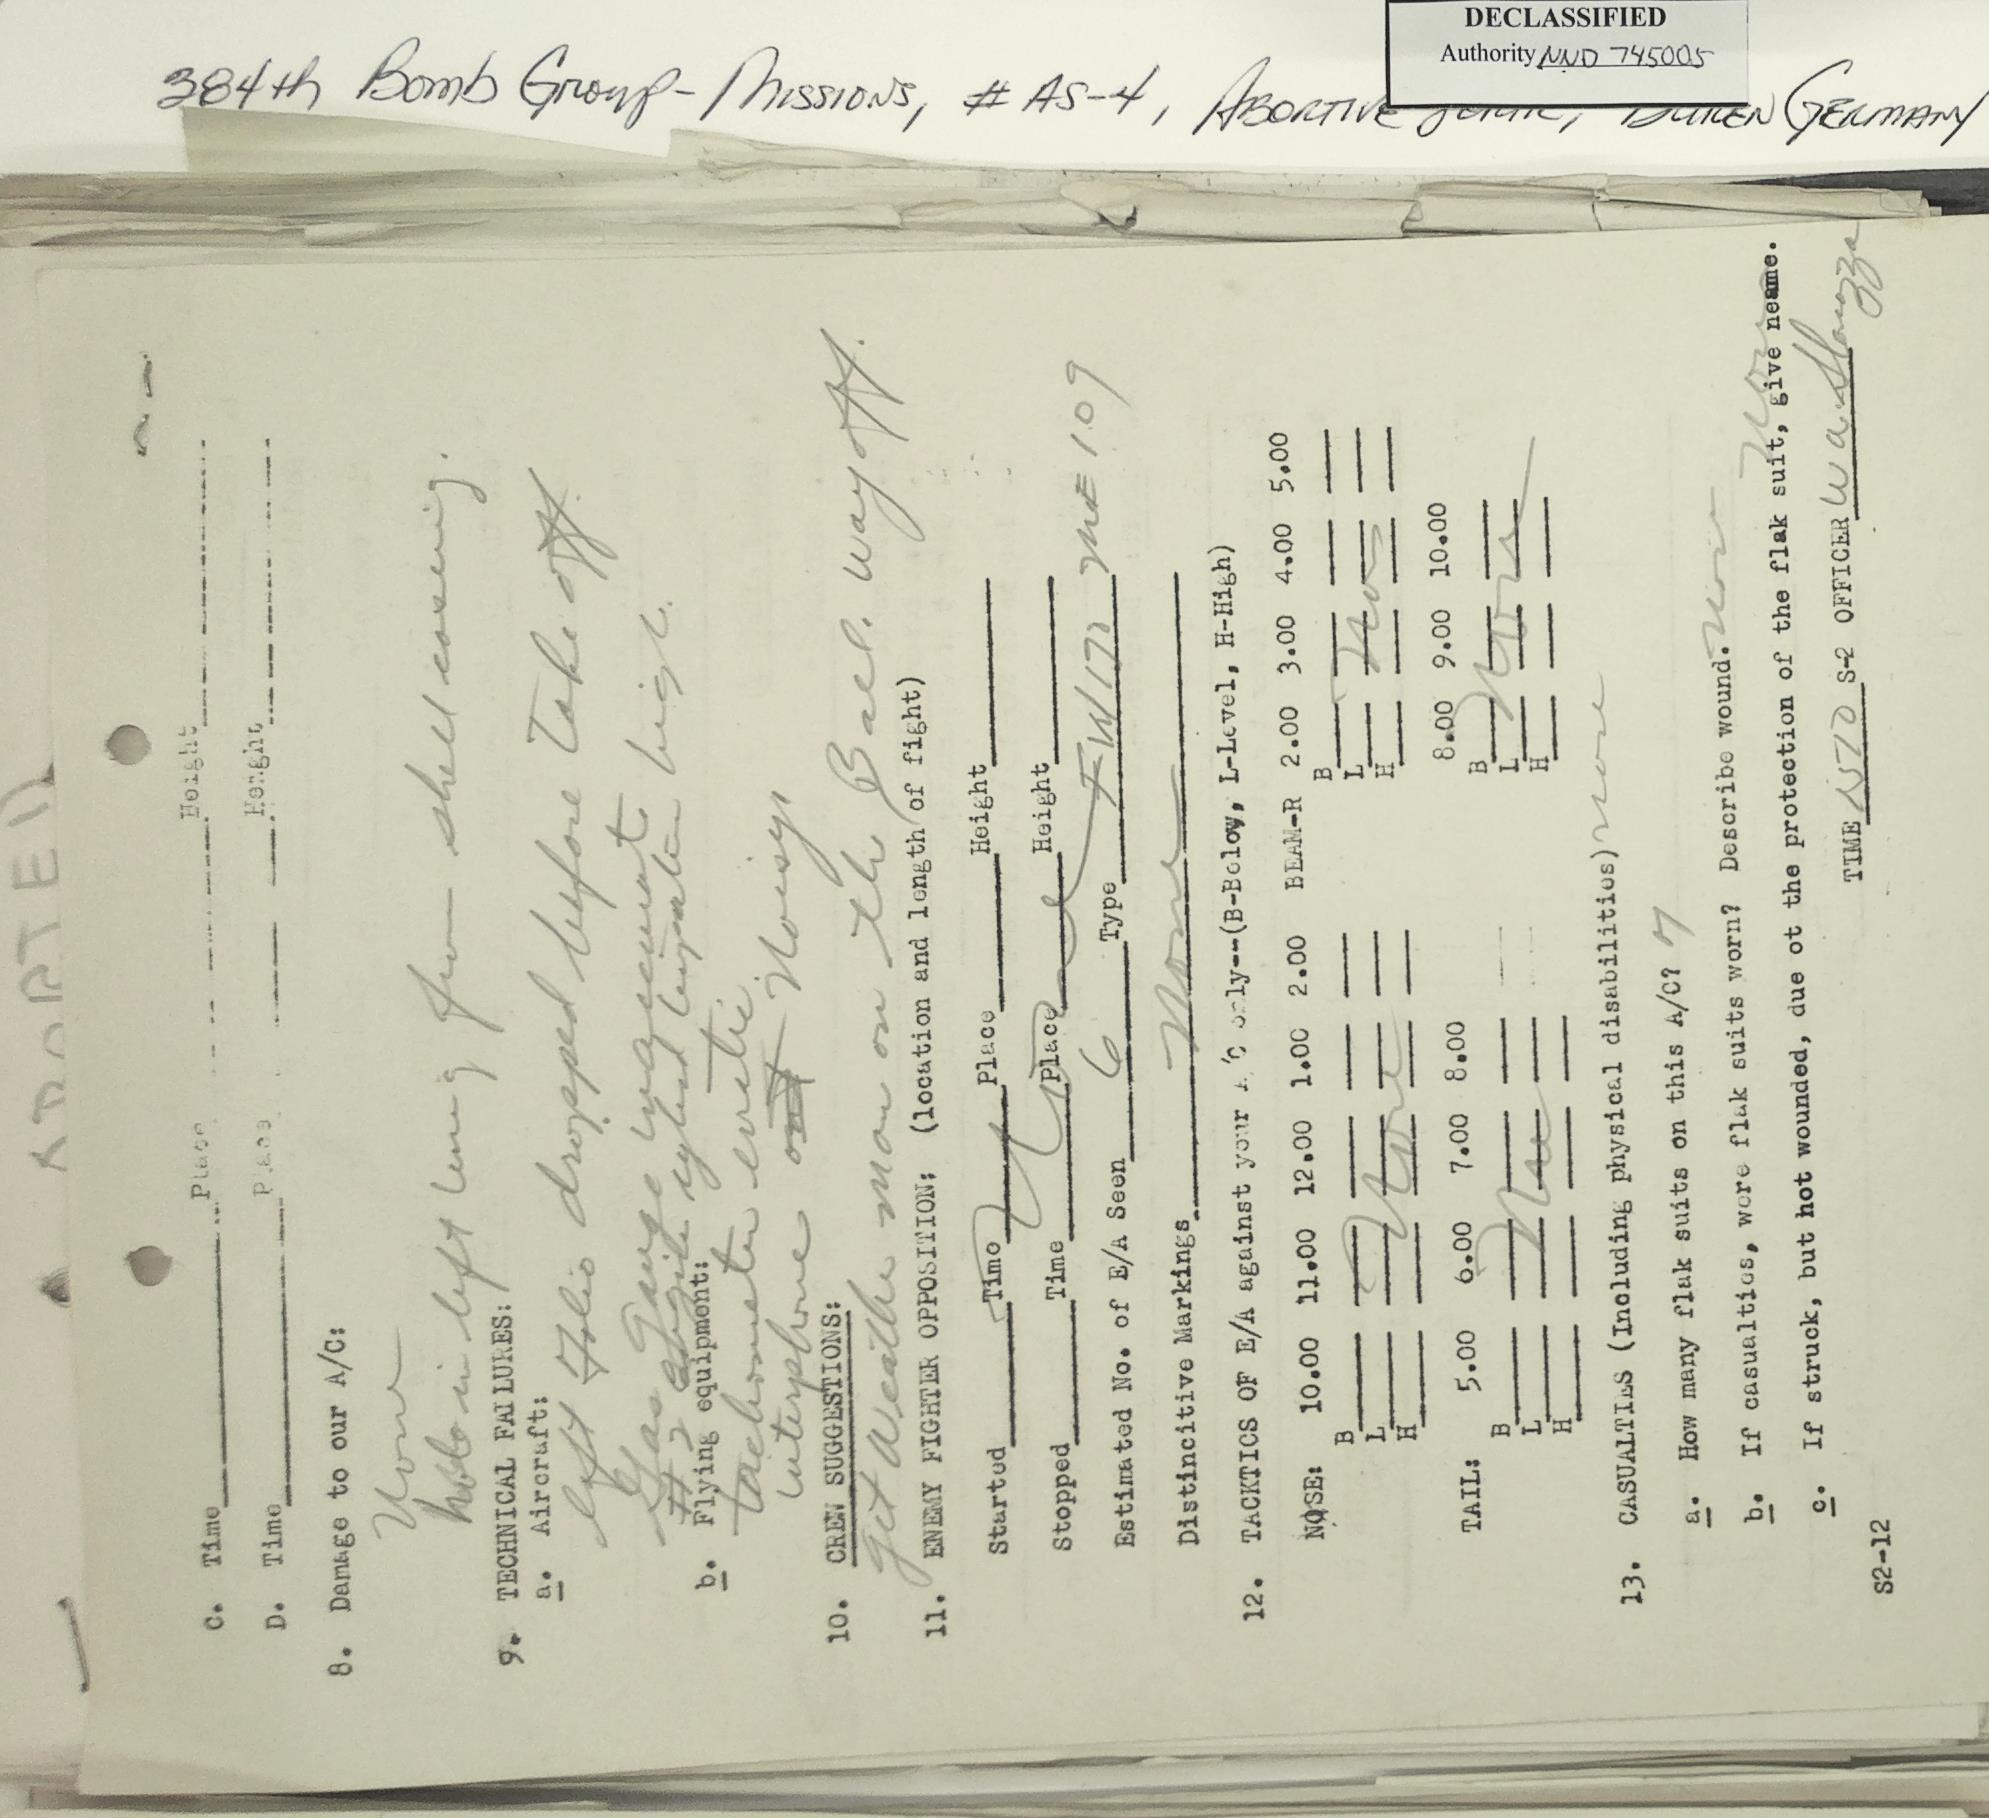 DECLASSIFIED
Authority NND 745005
384th Bomb Group - Missions, # AS-4, ABORTIVE GERMANY
C. Time Place Height
D. Time Place Henght
8. Damage to our A/C:
None
hole in left wing from shell casing.
9. TECHNICAL FAILURES:
a. Aircraft:
left dropped before Take off.
Gas Gauge inaccurate
#2 engine cylind high.
b. Flying equipment:
tachometer erratic.
interphone out Noisy.
10. CREW SUGGESTIONS:
Get Weather man on the Ball. way off.
11. ENEMY FIGHTER OPPOSITION: (location and length of fight)
Started Time Place Height
Stopped Time Place Height
Estimated No. of E/A Seen 6 Type FW 170 ME 109
Distincitive Markings None
12. TACKTICS OF E/A against your A/C only--(B-Below, L-Level, H-High)
NOSE: 10.00 11.00 12.00 1.00 2.00 BEAM-R 2.00 3.00 4.00 5.00
B B
L None L None
H H
TAIL: 5.00 6.00 7.00 8.00 8.00 9.00 10.00
B B
L L None
H H
13. CASUALTIES (Including physical disabilities) none
a. How many flak suits on this A/C? 7
b. If casualties, were flak suits worn? Describe wound. None
c. If struck, but hot wounded, due ot the protection of the flak suit, give neame. None
TIME 1570 S-2 OFFICER W a.
S2-12